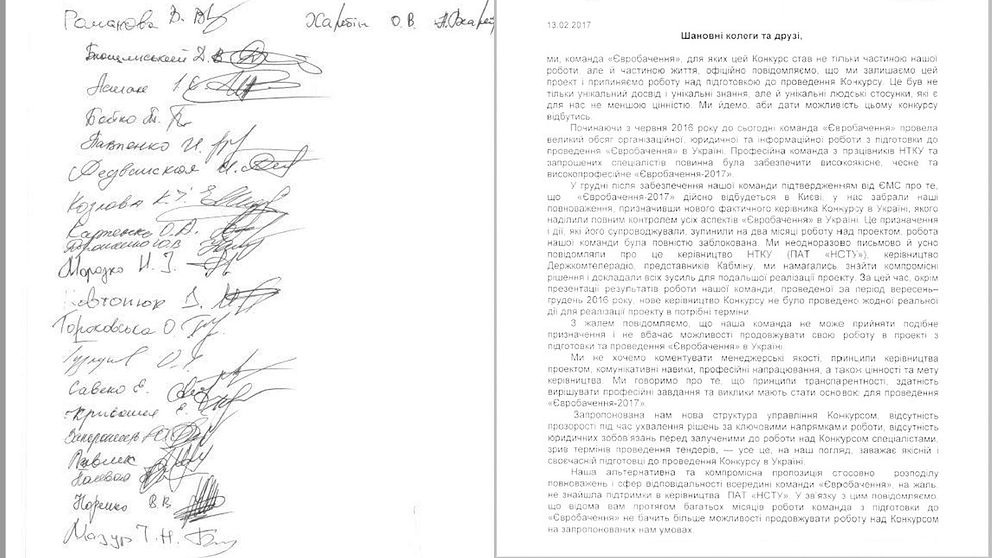 Романова В. В.
Харебін О. В
Бойко М.
Павленко И.
Козлова К.
Карпенко О. А.
Мороzко И. І.
Тороховська О
Савенко Е.
Павлик
Норенко В.В.
Мазур Т. Н.
13.02.2017
Шановні колеги та друзі,
ми, команда «Євробачення», для яких цей Конкурс став не тільки частиною нашої
роботи, але й частиною життя, офіційно повідомляємо, що ми залишаємо цей
проект і припиняємо роботу над підготовкою до проведення Конкурсу. Це був не
тільки унікальний досвід і унікальні знання, але й унікальні людські стосунки, які є
для нас не меншою цінністю. Ми йдемо, аби дати можливість цьому конкурсу
відбутись.
Починаючи з червня 2016 року до сьогодні команда «Євробачення» провела
великий обсяг організаційної, юридичної та інформаційної роботи з підготовки до
проведення «Євробачення» в Україні. Професійна команда з працівників НТКУ та
запрошених спеціалістів повинна була забезпечити високоякісне, чесне та
високопрофесійне «Євробачення-2017».
У грудні після забезпечення нашої команди підтвердженням від ЄМС про те,
що «Євробачення-2017» дійсно відбудеться в Києві, у нас забрали наші
повноваження, призначивши нового фактичного керівника Конкурсу в Україні, якого
наділили повним контролем усіх аспектів «Євробачення» в Україні. Це призначення
і дії, які його супроводжували, зупинили на два місяці роботу над проектом, робота
нашої команди була повністю заблокована. Ми неодноразово письмово й усно
повідомляли про це керівництво НТКУ (ПАТ «НСТУ»), керівництво
Держкомтелерадіо, представників Кабміну, ми намагались знайти компромісні
рішення і докладали всіх зусиль для подальшої реалізації проекту. За цей час, окрім
презентації результатів роботи нашої команди, проведеної за період вересень-
грудень 2016 року, нове керівництво Конкурсу не було проведено жодної реальної
дії для реалізації проекту в потрібні терміни.
З жалем повідомляємо, що наша команда не може прийняти подібне
призначення і не вбачає можливості продовжувати свою роботу в проекті з
підготовки та проведення «Євробачення» в Україні.
Ми не хочемо коментувати менеджерські якості, принципи керівництва
проектом, комунікативні навики, професійні напрацювання, а також цінності та мету
керівництва. Ми говоримо про те, що принципи транспарентності, здатність
вирішувати професійні завдання та виклики мають стати основою для проведення
«Євробачення-2017».
Запропонована нам нова структура управління Конкурсом, відсутність
прозорості під час ухвалення рішень за ключовими напрямками роботи, відсутність
юридичних зобов'язань перед залученими до роботи над Конкурсом спеціалістами,
зрив термінів проведення тендерів, — усе це, на наш погляд, заважає якісній і
своєчасній підготовці до проведення Конкурсу в Україні.
Наша альтернативна та компромісна пропозиція стосовно розподілу
повноважень і сфер відповідальності всередині команди «Євробачення», на жаль,
не знайшла підтримки в керівництва ПАТ «НСТУ». У зв'язку з цим повідомляємо,
що відома вам протягом багатьох місяців роботи команда з підготовки до
«Євробачення» не бачить більше можливості продовжувати роботу над Конкурсом
на запропонованих нам умовах.